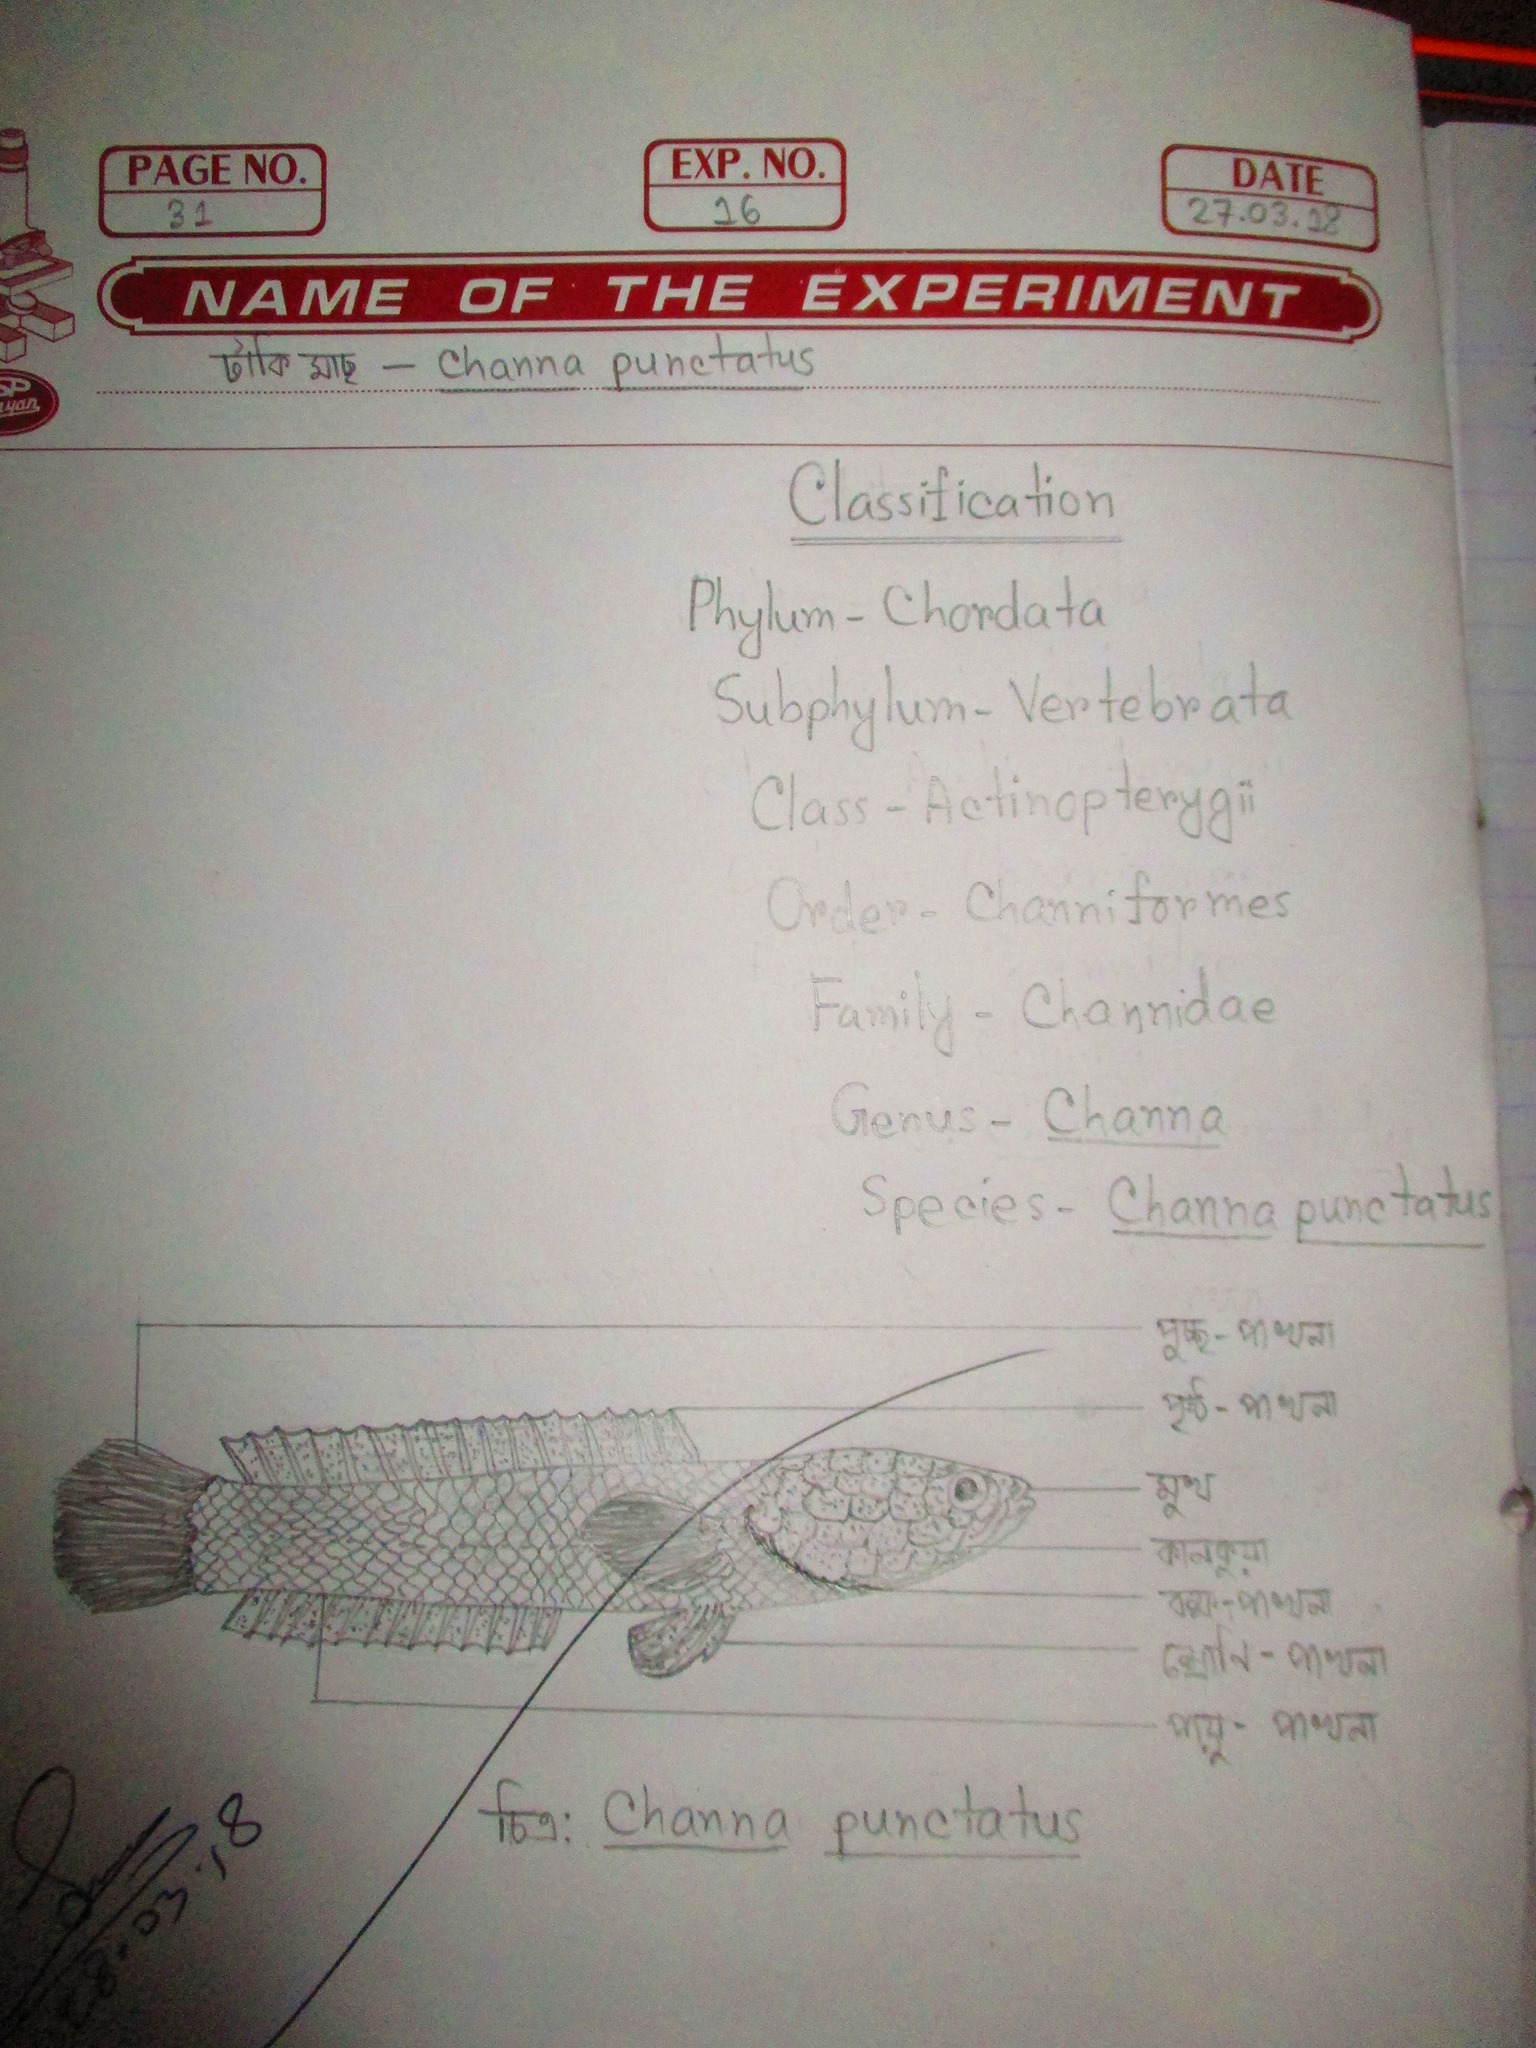 PAGE NO.
31
EXP. NO.
16
DATE
27.03.18
NAME OF THE EXPERIMENT
টাকি মাছ – Channa punctatus
Classification
Phylum - Chordata
Subphylum - Vertebrata
Class - Actinopterygii
Order - Channiformes
Family - Channidae
Genus - Channa
Species - Channa punctatus
পুচ্ছ-পাখনা
পৃষ্ঠ-পাখনা
মুখ
কানকুয়া
বক্ষ-পাখনা
শ্রোণি-পাখনা
পায়ু-পাখনা
চিত্র: Channa punctatus
28.03.18